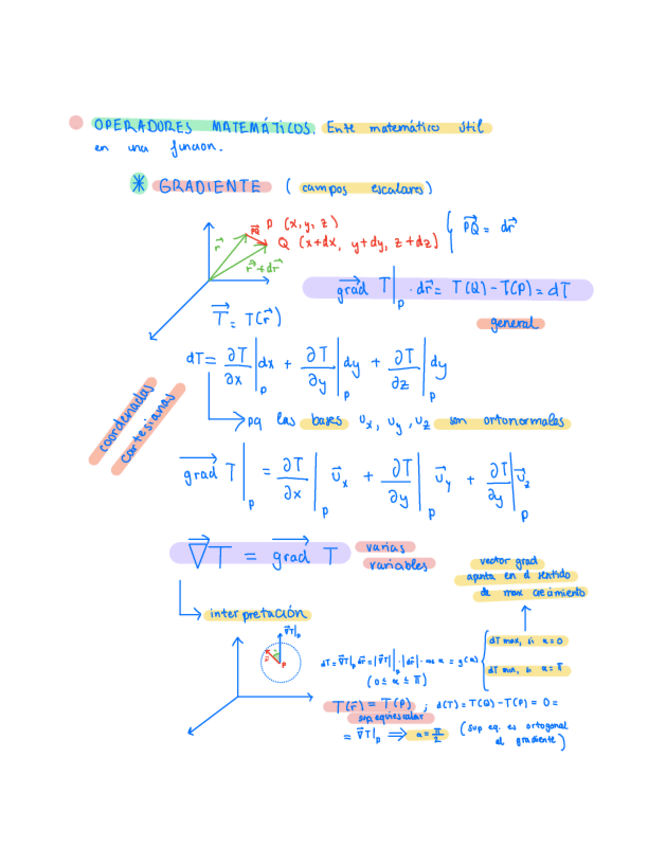 OPERADORES MATEMÁTICOS. Ente matemático útil
en una funcion.
* GRADIENTE (campos escalares)
P (x, y, z)
PQ
Q (x+dx, y+dy, z+dz)
r⃗
r⃗+dr⃗
{ PQ⃗ = dr⃗
grad⃗ T|p · dr⃗ = T(Q) - T(P) = dT
T⃗ = T(r⃗)
general
dT = ∂T/∂x|p dx + ∂T/∂y|p dy + ∂T/∂z|p dy
coordenadas
cartesianas
→ pq las bases ux, uy, uz son ortonormales
grad⃗ T|p = ∂T/∂x|p u⃗x + ∂T/∂y|p u⃗y + ∂T/∂y|p u⃗z
∇⃗T = grad⃗ T
varias
variables
vector grad
apunta en el sentido
de max crecimiento
interpretación
∇⃗T|p
P
dT = ∇⃗T|p dr⃗ = |∇⃗T||p · |dr⃗| · cos α = g(α)
(0 ≤ α ≤ π)
dT max, si α = 0
dT min, si α = π
T(r⃗) = T(P) ; d(T) = T(Q) - T(P) = 0 =
sup equiescalar
= ∇⃗T|p ⇒ α = π/2 (sup eq. es ortogonal
al gradiente)